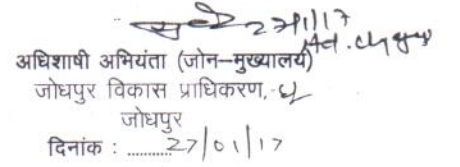 27/1/17
अधिशाषी अभियंता (जोन–मुख्यालय)
जोधपुर विकास प्राधिकरण,
जोधपुर
दिनांक : ........... 27/01/17